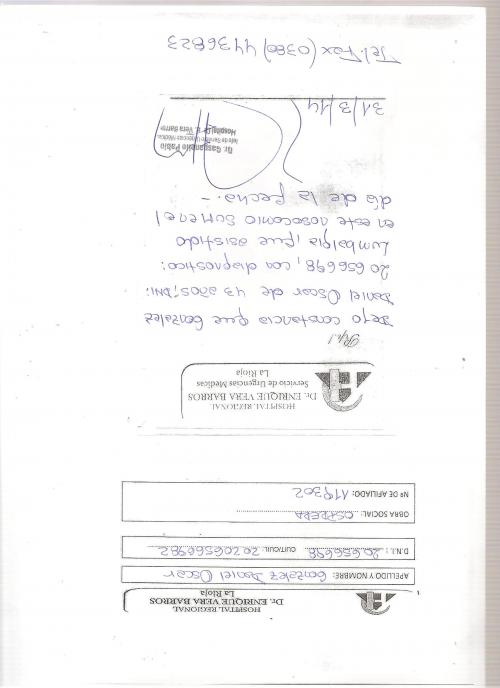 HOSPITAL REGIONAL
Dr. ENRIQUE VERA BARROS
La Rioja
APELLIDO Y NOMBRE: Gonzalez Daniel Oscar
D.N.I.: 20.656698 CUIT/CUIL: 20206566982
OBRA SOCIAL: OSPRERA
Nº DE AFILIADO: 119302
HOSPITAL REGIONAL
Dr. ENRIQUE VERA BARROS
Servicio de Urgencias Medicas
La Rioja
Rp/
Dejo constancia que Gonzalez
Daniel Oscar de 43 años, DNI:
20656698, con diagnostico:
Lumbalgia, fue asistido
en este nosocomio Sum en el
día de la fecha.-
Dr. Pablo
Jefe de Servicio Urgencias Médicas
Hospital Dr. E. Vera Barros
31/3/14
Tel.Fax (0380) 4436823